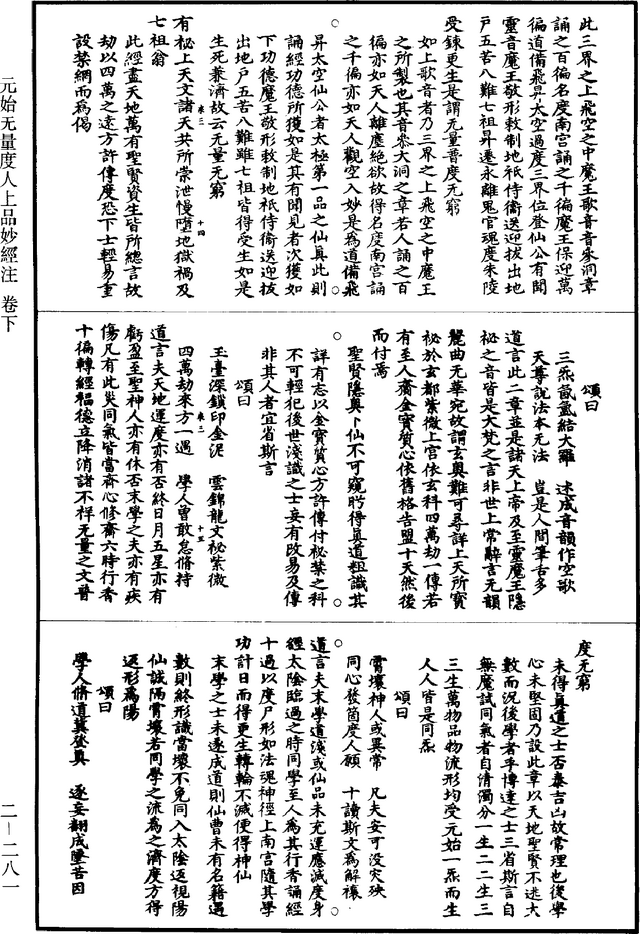 此三界之上飛空之中魔王歌音音參洞章
誦之百徧名度南宮誦之千徧魔王保迎萬
徧道備飛昇太空過度三界位登仙公有聞
靈音魔王敬形敕制地祇侍衛送迎拔出地
戶五苦八難七祖昇遷永離鬼官魂度朱陵
受鍊更生是謂无量普度无窮
如上歌音者乃三界之上飛空之中魔王
之所製也其音參大洞之章若人誦之百
徧亦如天人離塵絕欲故得名度南宮誦
之千徧亦如天人觀空入妙是為道備飛
昇太空仙公者太極第一品之仙真此則
誦經功德所獲如是其有聞見者次獲如
下功德魔王敬形敕制地祇侍衛送迎拔
出地戶五苦八難雖七祖皆得受生如是
生死兼濟故云无量无窮
卷三
十四
有祕上天文諸天共所崇泄慢墮地獄禍及
七祖翁
此經盡天地萬有聖賢資生皆所總言故
劫以四萬之遠方許傳度恐下士輕易重
設禁網而為偈
頌曰
三炁哉氤結大羅 述成音韻作空歌
天尊說法本无法 豈是人間筆舌多
道言此二章並是諸天上帝及至靈魔王隱
祕之音皆是大梵之言非世上常辭言无韻
麗曲无華宛故謂玄奧難可尋詳上天所寶
祕於玄都紫微上宮依玄科四萬劫一傳若
有至人齎金寶質心依舊格告盟十天然後
而付焉
聖賢隱奧卜仙不可窺眄得真道粗識其
詳有志以金寶質心方許傳付祕禁之科
不可輕犯後世淺識之士妄有改易及傳
非其人者宜省斯言
頌曰
玉臺深鎖印金泥 雲錦龍文祕紫微
卷三
十五
四萬劫來方一遇 學人曾敢怠脩持
道言夫天地運度亦有否終日月五星亦有
虧盈至聖神人亦有休否末學之夫亦有疾
傷凡有此災同氣皆當齋心修齋六時行香
十徧轉經福德立降消諸不祥无量之文普
度无窮
未得真道之士否泰吉凶故常理也後學
心未堅固乃設此章以天地聖賢不逃大
數而況後學者乎博達之士三省斯言自
無魔試同氣者自清濁分一生二二生三
三生萬物品物流形均受元始一炁而生
人人皆是同炁
頌曰
霄壤神人或異常 凡夫安可沒灾殃
同心發箇度人願 十讀斯文為解禳
道言夫末學道淺或仙品未充運應滅度身
經太陰臨過之時同學至人為其行香誦經
十過以度尸形如法魂神徑上南宮隨其學
功計日而得更生轉輪不滅便得神仙
末學之士未遂成道則仙曹未有名籍遇
數則終形識當壞不免同入太陰返視陽
仙誠隔霄壤若同學之流為之濟度方得
返形為陽
頌曰
學人脩道冀登真 遂妄翻成墮苦因
元始无量度人上品妙經注 卷下
二—二八一